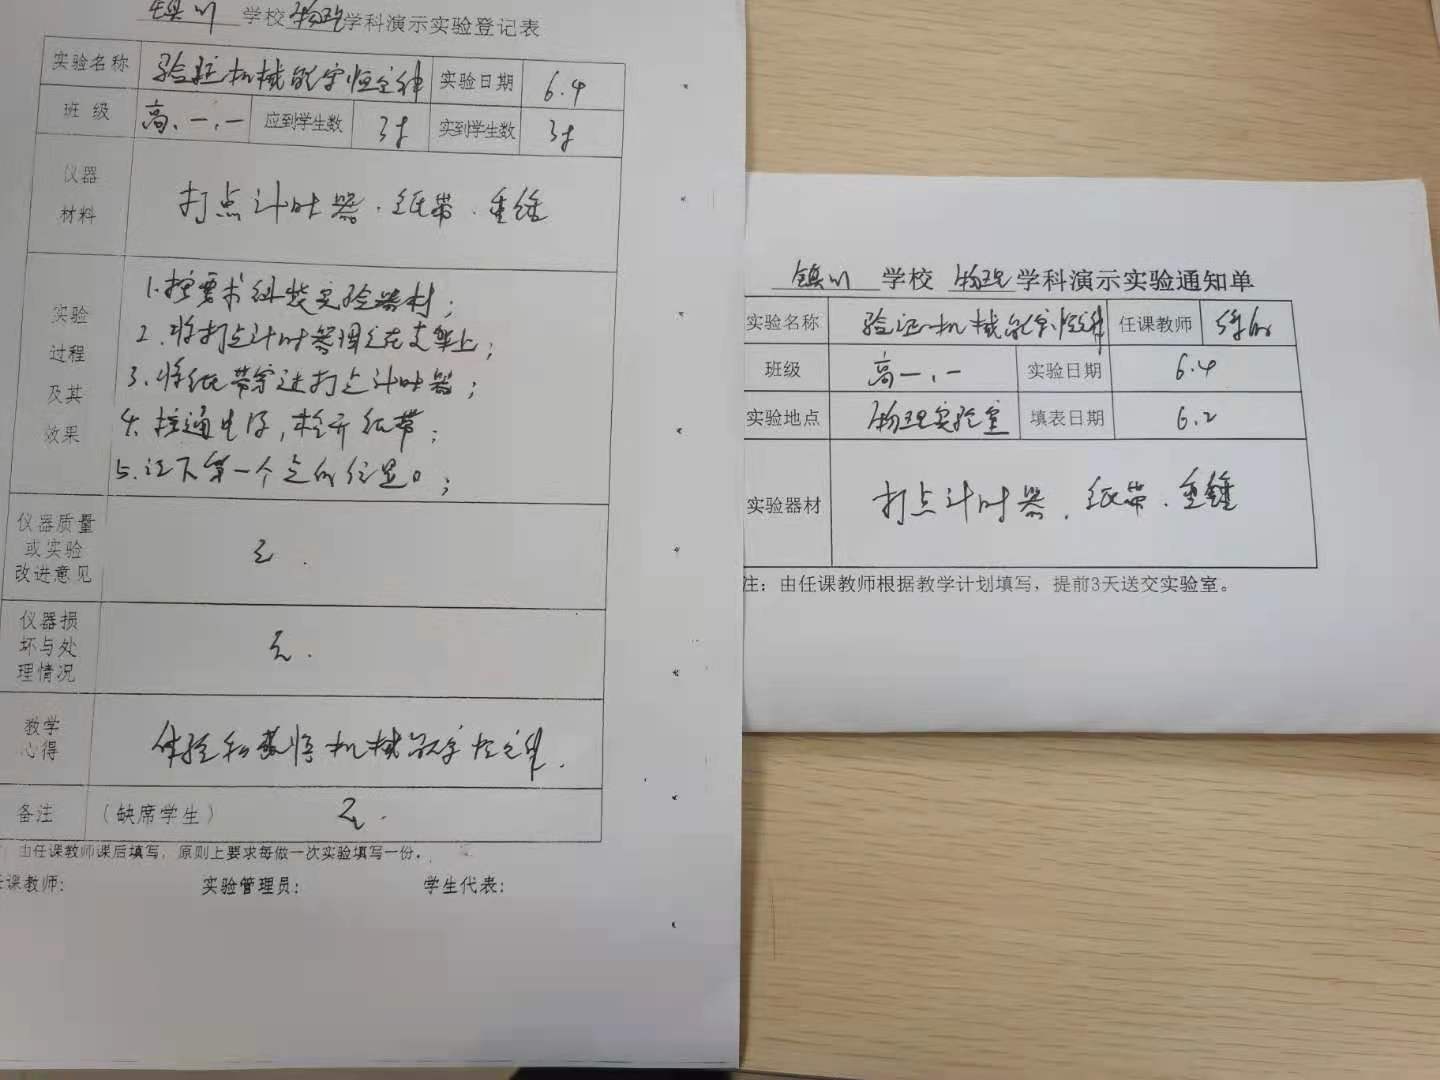 镇川 学校 物理 学科演示实验登记表
实验名称 验证机械能守恒定律 实验日期 6.4
班 级 高、一、一 应到学生数 实到学生数
仪器
材料
打点计时器、纸带、重锤
实验
过程
及其
效果
1.按要求组装实验器材；
2.将打点计时器固定在支架上；
3.将纸带穿过打点计时器；
4.接通电源，松开纸带；
5.记下第一个点的位置0；
仪器质量
或实验
改进意见
无.
仪器损
坏与处
理情况
无.
教学
心得
体验和感悟机械能守恒定律.
备注 （缺席学生） 无.
由任课教师课后填写，原则上要求每做一次实验填写一份。
任课教师： 实验管理员： 学生代表：
镇川 学校 物理 学科演示实验通知单
实验名称 验证机械能守恒定律 任课教师
班级 高一、一 实验日期 6.4
实验地点 物理实验室 填表日期 6.2
实验器材 打点计时器、纸带、重锤
注：由任课教师根据教学计划填写，提前3天送交实验室。